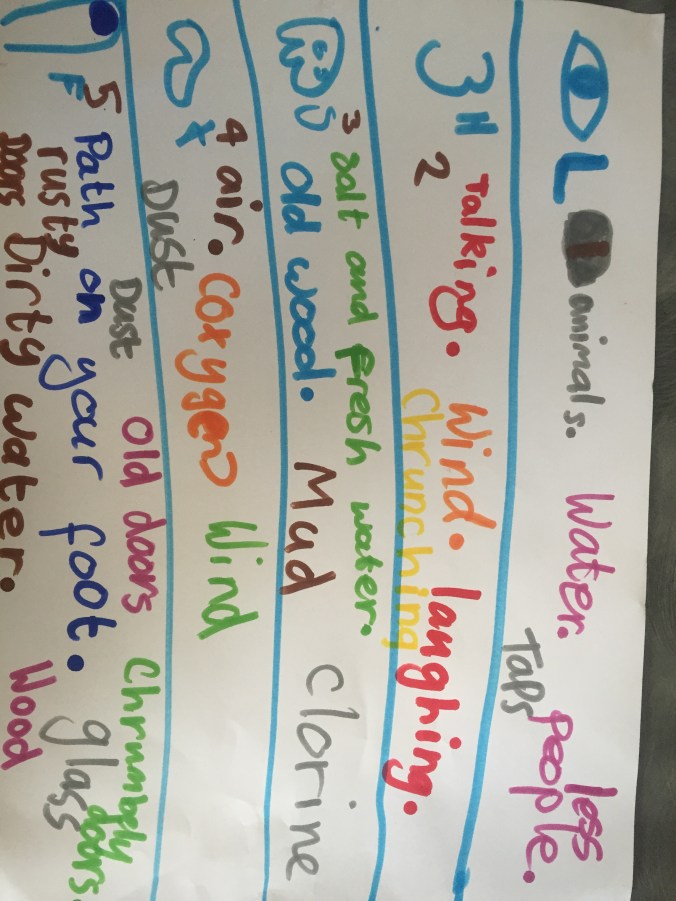 L animals. Water. less
people.
Taps
H Talking. Wind. laughing.
2 Chrunching
3 salt and fresh water.
old wood. Mud Clorine
4 air. (oxygen) Wind
Dust
Dust old doors Chrumbely doors.
F 5 Path on your foot. glass
rusty
Doors Dirty water. Wood